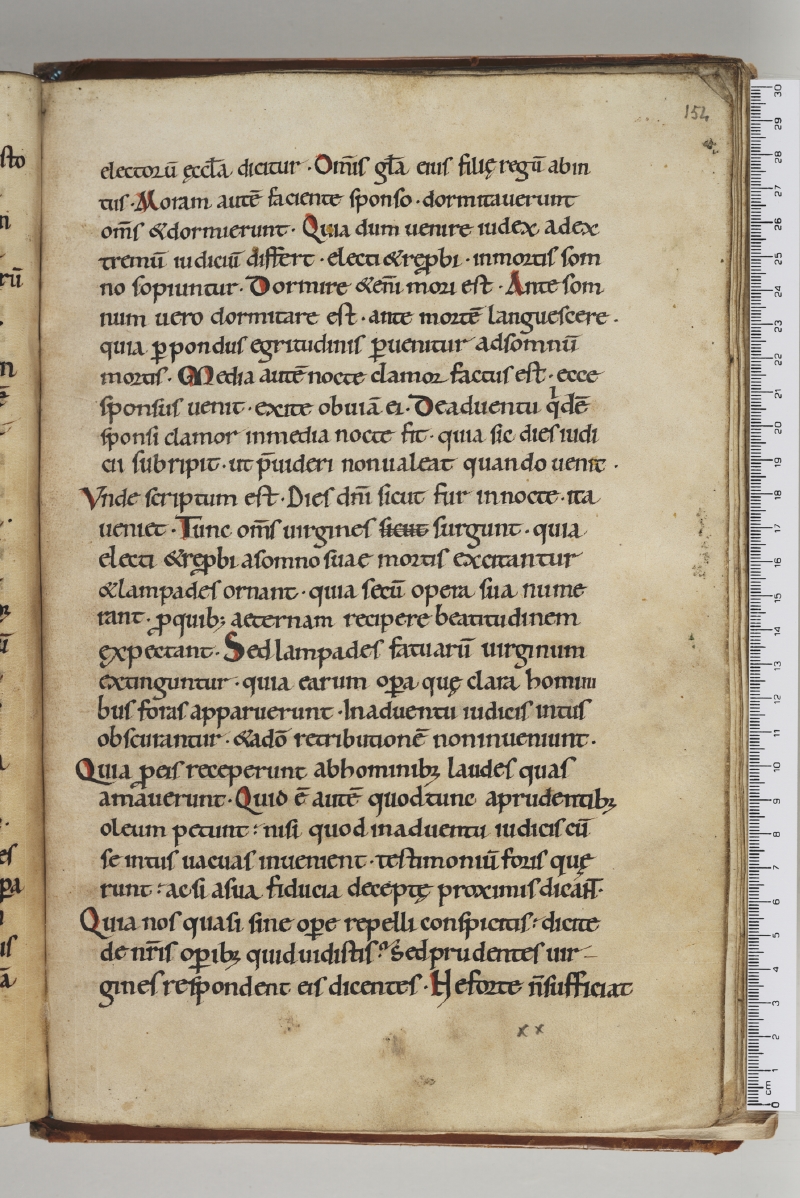 154
electorū ęccła dicitur · Om̅s gła eius filię regū abin
tus · Moram autē faciente sponso · dormitauerunt
om̅s & dormierunt · Quia dum uenire iudex adex
tremū iudiciū differt · electi & rꝓbi · inmortis som
no sopiuntur · Dormire & eni̅ mori est · Ante som
num uero dormitare est · ante mortē languescere ·
quia ꝑ pondus egritudinis ꝑuenitur adsomnū
mortis · Media autē nocte clamor factus est · ecce
sponsus uenit · exite obuiā ei · Deaduentu qͥdē
sponsi clamor inmedia nocte fit · quia sic dies iudi
cii subripit · ut p̄uideri nonualeat quando uenit ·
Vnde scriptum est · Dies dn̄i sicut fur innocte · ita
ueniet · Tunc om̅s uirgines sicut surgunt · quia
electi & rꝓbi asomno suae mortis excitantur
& lampades ornant · quia secū opera sua nume
rant · ꝓquib; aeternam recipere beatitudinem
ęxpectant · Sed lampades fatuarū uirginum
extinguntur · quia earum oꝑa quę clara homini
bus foras apparuerunt · Inaduentu iudicis intus
obscurantur · & adō retributionē noninueniunt ·
Quia ꝓeis receperunt abhominib; laudes quas
amauerunt · Quid ē autē quodtunc aprudentib;
oleum petunt : nisi quod inaduentu iudicis cū
se intus uacuas inuenient · testimoniū foris quę
runt : acsi asua fiducia deceptę proximis dicant ·
Quia nos quasi sine oꝑe repelli conspicitis : dicite
de nr̄is oꝑib; quid uidistis ? Sed prudentes uir
gines respondent eis dicentes · Ne forte n̄ sufficiat
x x
sto
n
rū
n
ū
es
pa
is
ā
30
29
28
27
26
25
24
23
22
21
20
19
18
17
16
15
14
13
12
11
10
9
8
7
6
5
4
3
2
1
cm
0